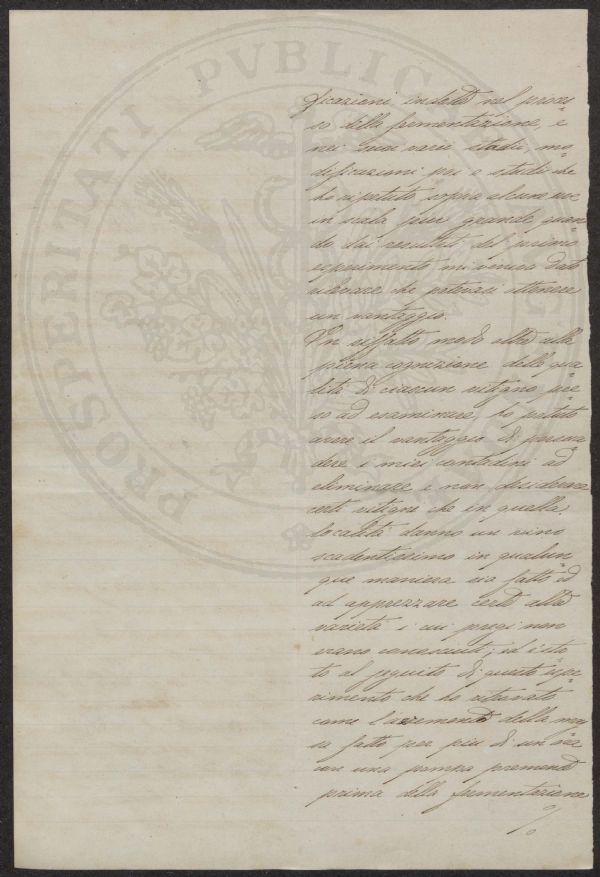 PROSPERITATI PVBLICAE
ficazioni indotte nel proces=
so della fermentazione, e
nei suoi varii stadi, mo=
dificazioni poi e studi che
ho ripetuto sopra alcune uve
in scala piu grande quan
do dai resultati del primo
esperimento mi veniva dato
rilevare che potevasi ottenere
un vantaggio.
In siffatto modo oltre alla
piena cognizione della qua
lità di ciascun vitigno pre
so ad esaminare ho potuto
avere il vantaggio di persua
dere i miei contadini ad
eliminare e non desiderare
certi vitigni che in quella
località danno un vino
scadentissimo in qualun
que maniera sia fatto ed
ad apprezzare certe altre
varietà i cui pregi non
erano conosciuti; ed è sta
to al seguito di questo espe
rimento che ho ritrovato
come l'
della
sa fatto per piu di un ora
con una pompa premente
prima della fermentazione
%